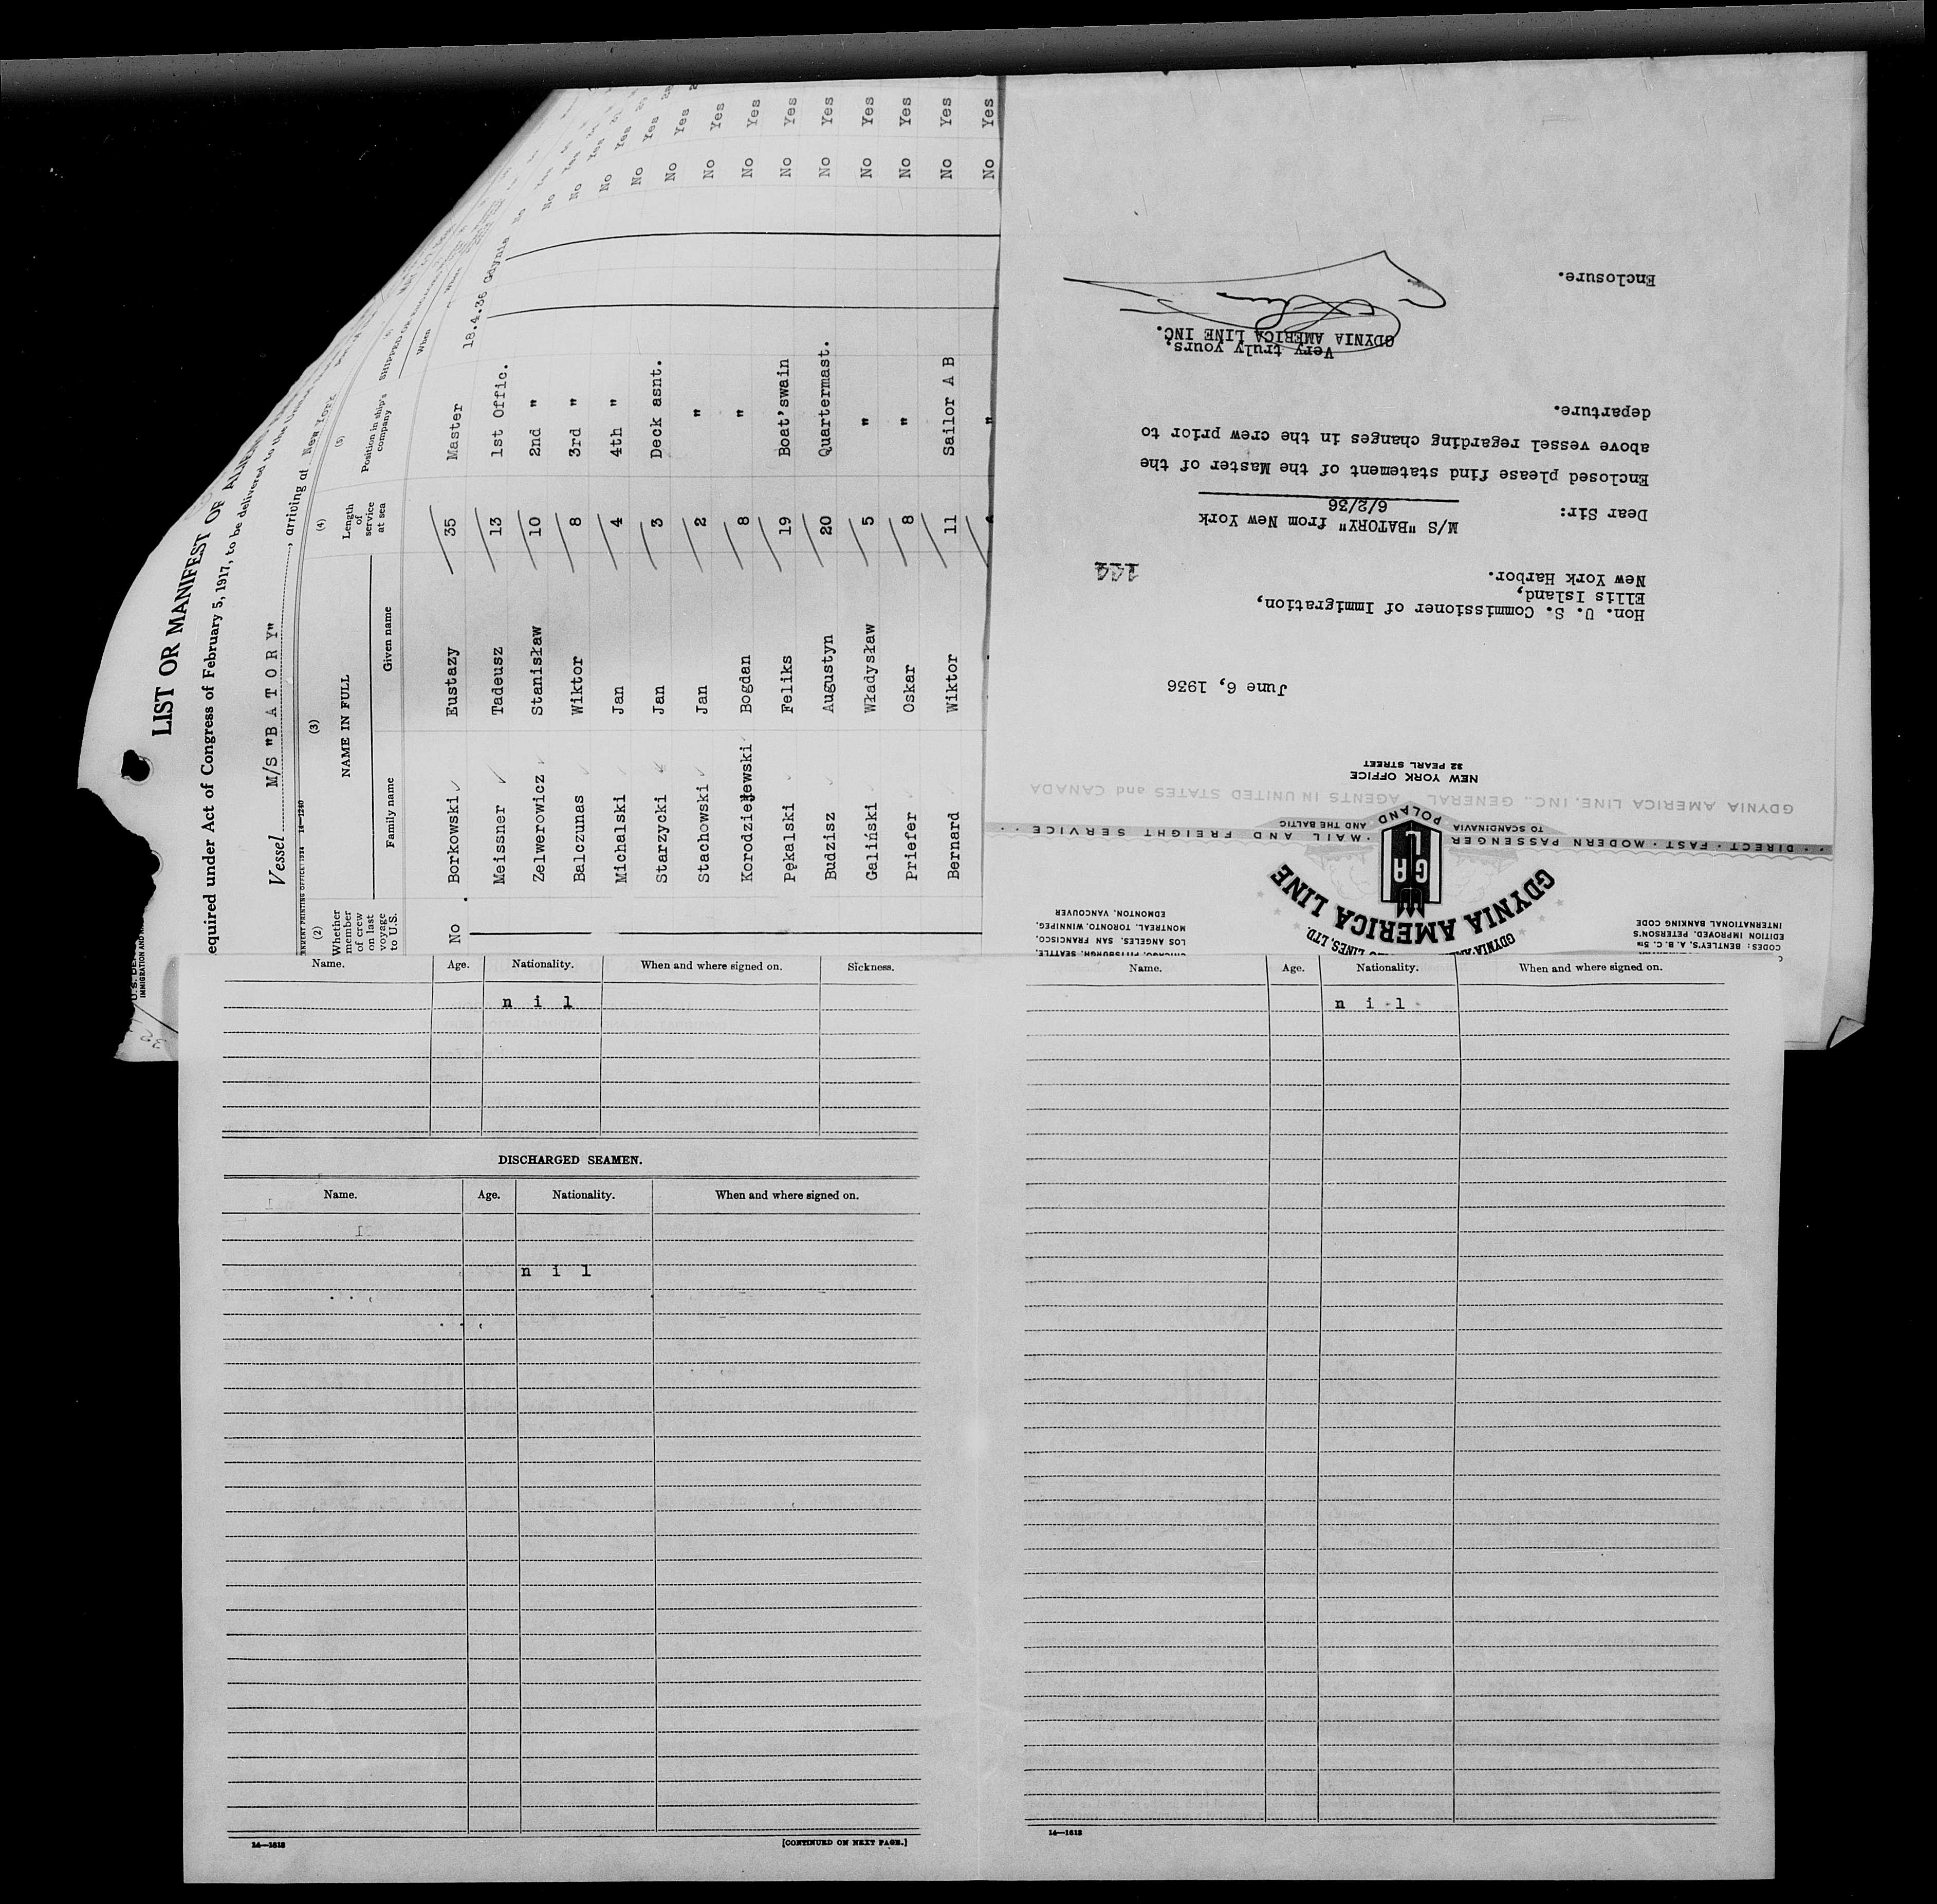 LIST OR MANIFEST OF
equired under Act of Congress of February 5, 1917, to be delivered to the
Vessel M/S "B A T O R Y", arriving at New York
(2) (3) (4) (5)
Whether member of crew on last voyage to U.S.
NAME IN FULL
Family name Given name
Length of service at sea
Position in ship's company
When
No Borkowski Eustazy 35 Master 18.4.36 Gdynia
Meissner Tadeusz 13 1st Offic.
Zelwerowicz Stanisław 10 2nd "
Balczunas Wiktor 8 3rd "
Michalski Jan 4 4th " No Yes
Starzycki Jan 3 Deck asnt. No Yes
Stachowski Jan 2 " No Yes
Korodziejewski Bogdan 8 " No Yes
Pękalski Feliks 19 Boat'swain No Yes
Budzisz Augustyn 20 Quartermast. No Yes
Galiński Władysław 5 " No Yes
Priefer Oskar 8 " No Yes
Bernard Wiktor 11 Sailor A B No Yes
" No Yes
CODES: BENTLEY'S, A. B. C. 5TH
EDITION IMPROVED, PETERSON'S
INTERNATIONAL BANKING CODE
GDYNIA-AMERICA LINES, LTD.
GDYNIA AMERICA LINE
CHICAGO, PITTSBURGH, SEATTLE,
LOS ANGELES, SAN FRANCISCO,
MONTREAL, TORONTO, WINNIPEG,
EDMONTON, VANCOUVER
GAL
· · DIRECT · FAST · MODERN PASSENGER · MAIL AND FREIGHT SERVICE · ·
TO SCANDINAVIA · POLAND · AND THE BALTIC
GDYNIA AMERICA LINE, INC., GENERAL AGENTS IN UNITED STATES and CANADA
NEW YORK OFFICE
32 PEARL STREET
June 6, 1936
Hon. U. S. Commissioner of Immigration,
Ellis Island,
New York Harbor.
144
M/S "BATORY" from New York
6/2/36
Dear Sir:
Enclosed please find statement of the Master of the
above vessel regarding changes in the crew prior to
departure.
Very truly yours,
GDYNIA AMERICA LINE INC.
Enclosure.
Name. Age. Nationality. When and where signed on. Sickness.
n i l
DISCHARGED SEAMEN.
Name. Age. Nationality. When and where signed on.
n i l
14—1618
[CONTINUED ON NEXT PAGE.]
Name. Age. Nationality. When and where signed on.
n i l
14—1618